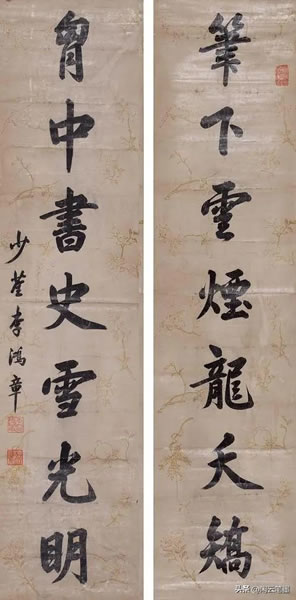 筆下雲煙龍夭矯
胷中書史雪光明
少荃李鴻章
头条